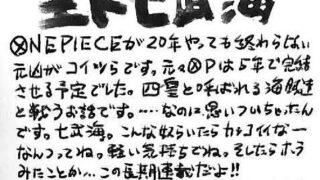 王下七武海
ⓍNEPIECEが20年やっても終わらない
元凶がコイツらです。元々ⓍPは5年で完結
させる予定でした。四皇と呼ばれる海賊達
と戦うお話です。……なのに、思いついちゃったん
です。七武海。こんな奴らいたらカッコイイなー
なんつってね。軽い気持ちでね。そしたらホラ
みたことか…この長期連載だよ!!